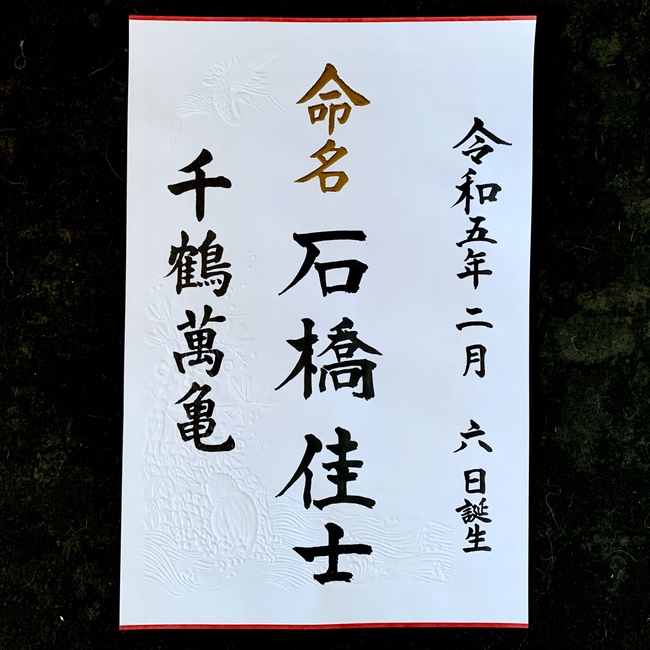 令和五年 二月 六日誕生
命名
石橋佳士
千鶴萬亀